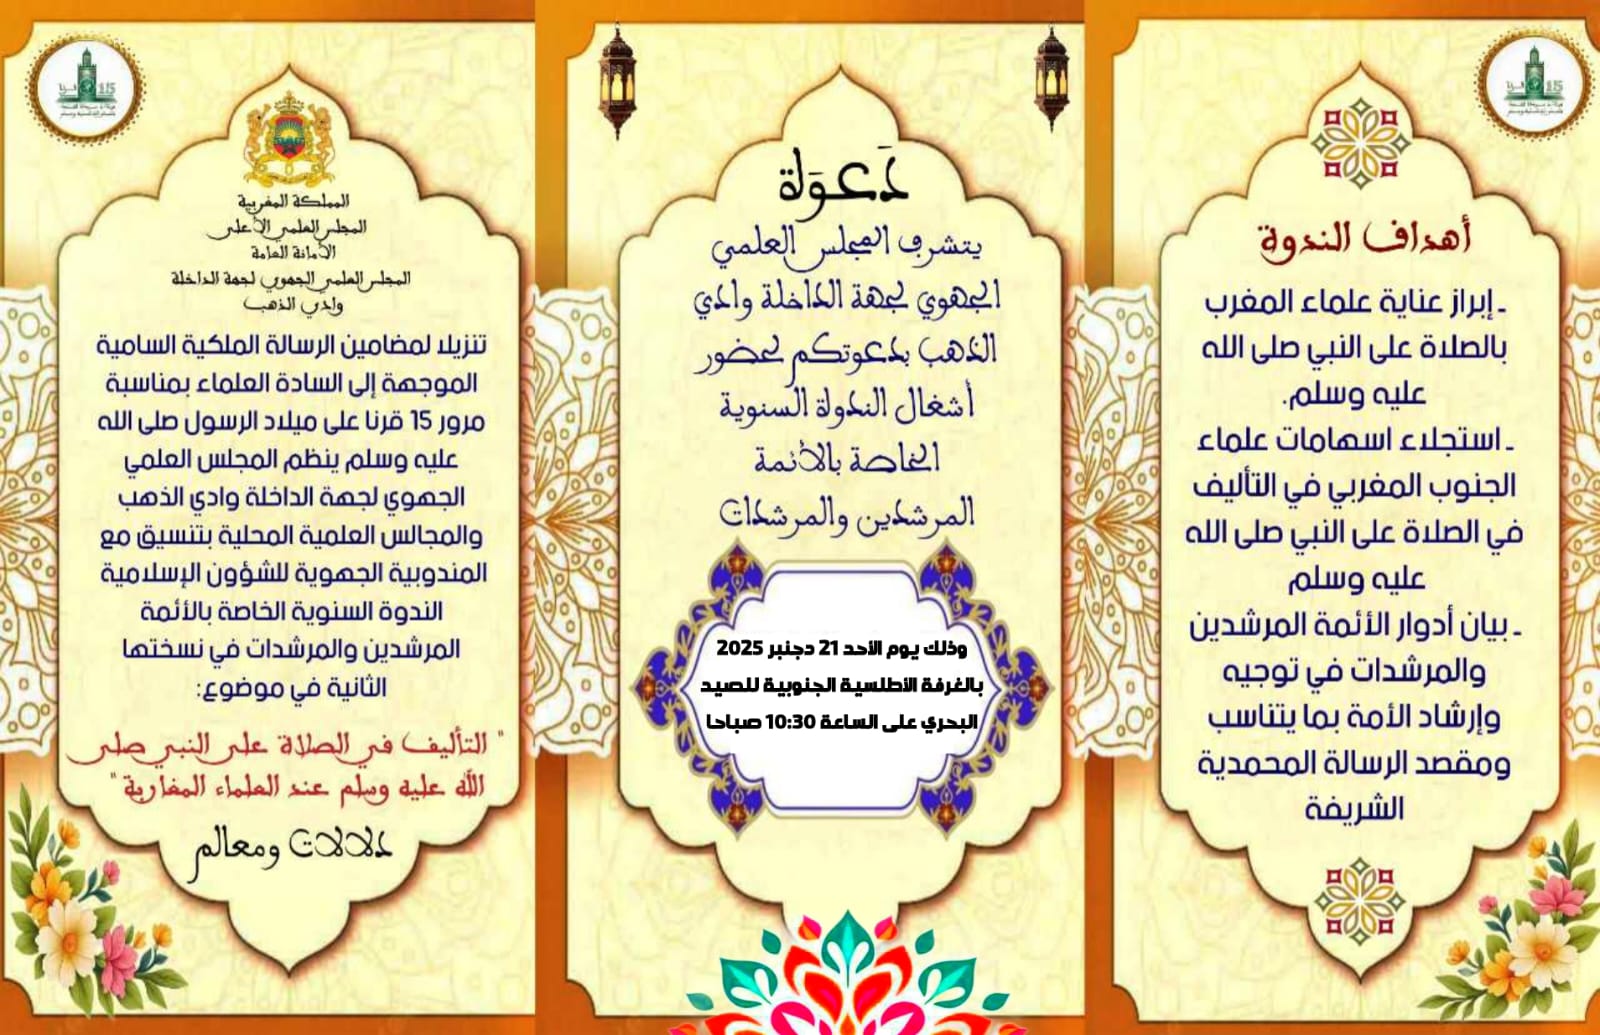 المملكة المغربية
المجلس العلمي الأعلى
الأمانة العامة
المجلس العلمي الجهوي لجهة الداخلة
وادي الذهب
تنزيلا لمضامين الرسالة الملكية السامية
الموجهة إلى السادة العلماء بمناسبة
مرور 15 قرنا على ميلاد الرسول صلى الله
عليه وسلم ينظم المجلس العلمي
الجهوي لجهة الداخلة وادي الذهب
والمجالس العلمية المحلية بتنسيق مع
المندوبية الجهوية للشؤون الإسلامية
الندوة السنوية الخاصة بالأئمة
المرشدين والمرشدات في نسختها
الثانية في موضوع:
" التأليف في الصلاة على النبي صلى
الله عليه وسلم عند العلماء المغاربة"
دلالات ومعالم
دَعوَة
يتشرف المجلس العلمي
الجهوي لجهة الداخلة وادي
الذهب بدعوتكم لحضور
أشغال الندوة السنوية
الخاصة بالأئمة
المرشدين والمرشدات
وذلك يوم الأحد 21 دجنبر 2025
بالغرفة الأطلسية الجنوبية للصيد
البحري على الساعة 10:30 صباحا
أهداف الندوة
ـ إبراز عناية علماء المغرب
بالصلاة على النبي صلى الله
عليه وسلم.
ـ استجلاء اسهامات علماء
الجنوب المغربي في التأليف
في الصلاة على النبي صلى الله
عليه وسلم
ـ بيان أدوار الأئمة المرشدين
والمرشدات في توجيه
وإرشاد الأمة بما يتناسب
ومقصد الرسالة المحمدية
الشريفة